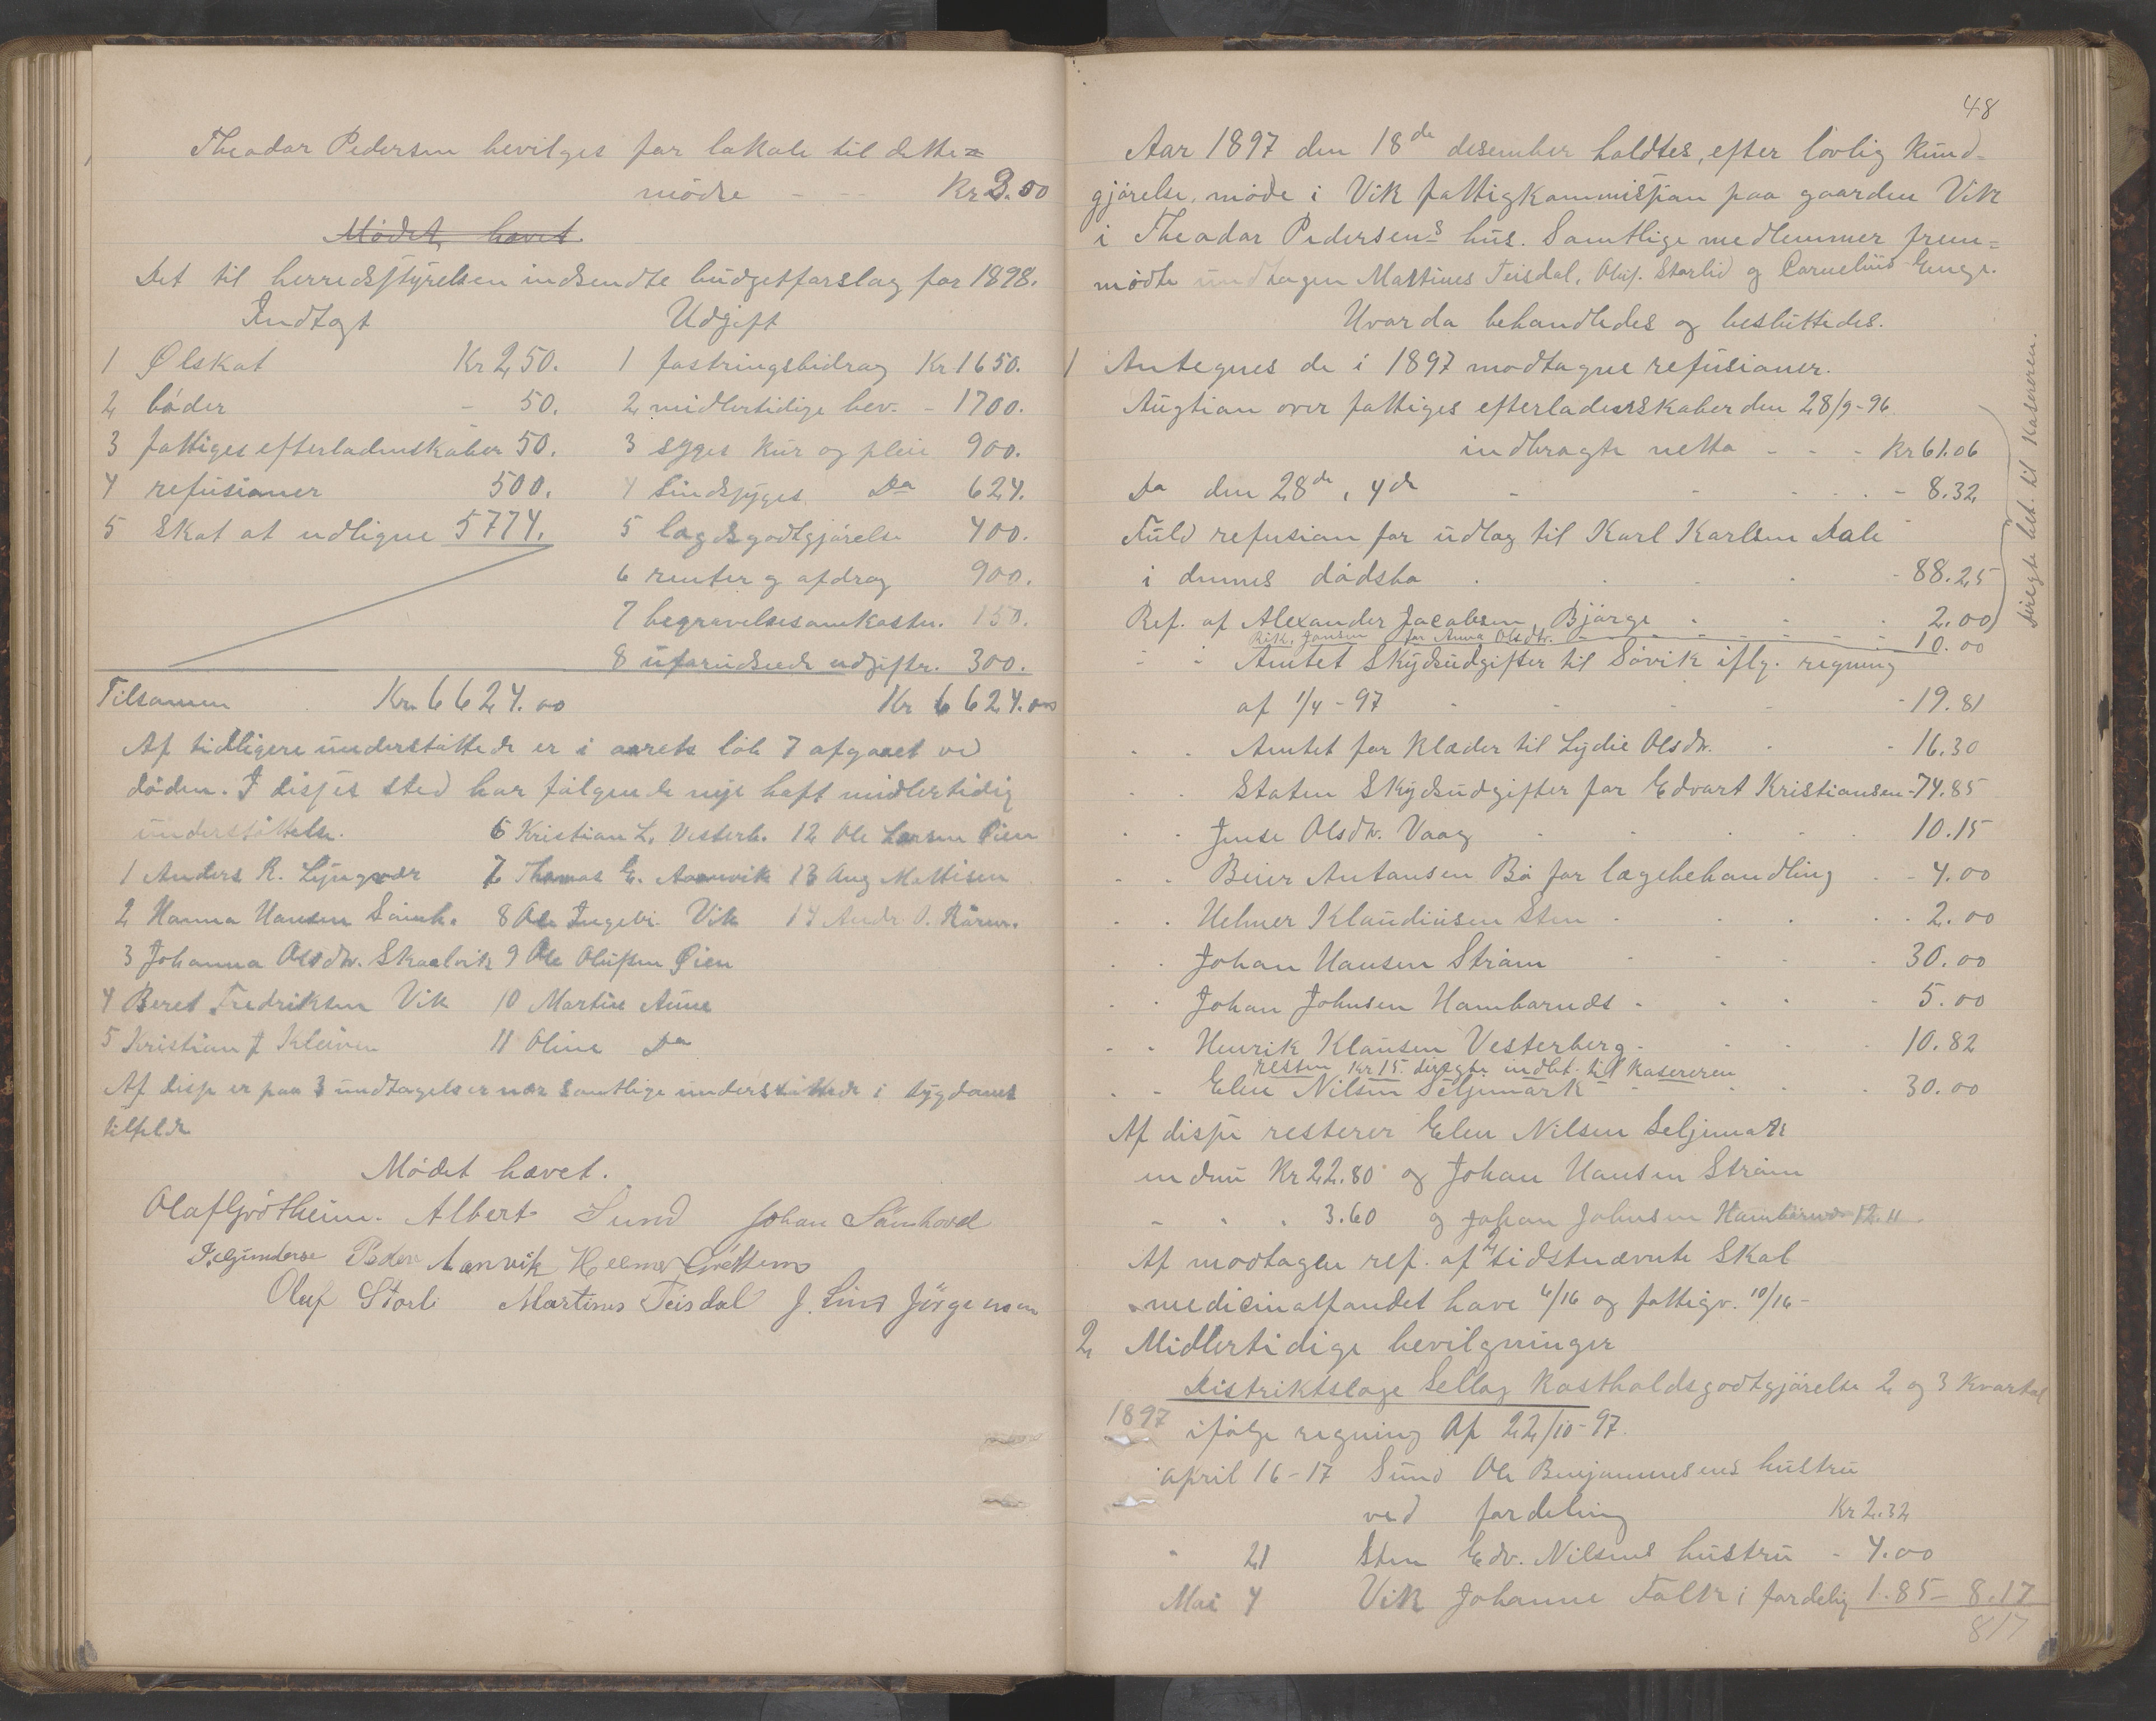 Theodor Pedersen bevilges for lokale til dette=
møde - - Kr 3.00
Mødet hævet.
Det til herredsstyrelsen indsendte budgetforslag for 1898.
Indtægt Udgift
1 Ølskat Kr 250. 1 fostringsbidrag Kr 1650.
2 bøder - 50. 2 midlertidige bev. - 1700.
3 fattiges efterladenskaber 50. 3 syges kur og pleie 900.
4 refusioner 500. 4 Sindsyges Do 624.
5 skat at udligne 5774. 5 lægdsgodtgjørelse 400.
6 renter og afdrag 900.
7 begravelsesomkostn. 150.
8 uforudseede udgifter. 300.
Tilsamen Kr. 6624.00 Kr 6624.00
Af tidligere understøttede er i aarets løb 7 afgaaet ved
døden. I disses sted har følgende nye haft midlertidig
understøttelse. 6 Kristian L. Vesterb. 12 Ole Larsen Øien
1 Anders R. Lyngvær 7 Thomas E. Aanvik 13 Aug Mattisen
2 Hanna Hansen Sømh. 8 Ole Ingebr. Vik 14 Andr. O.
3 Johanna Olsdtr. Skaalvik 9 Ole Olufsen Øien
4 Beret Fredriksen Vik 10 Martin Aune
5 Kristian J Kleiven 11 Oline Do
Af disse er paa 3 undtagelser nær samtlige understøttede i sygdoms
tilfælde
Mødet hævet.
Olaf Grøtheim. Albert Sund Johan Sømhovd
Peder Aanvik Helmer Grøttem
Oluf Storli Martines Teisdal J. Lins Jørgensen
48
Aar 1897 den 18de desember holdtes, efter lovlig kund-
gjørelse, møde i Vik fattigkommission paa gaarden Vik
i Theodor Pedersens hus. Samtlige medlemmer frem=
mødte undtagen Martines Teisdal, Oluf. Storlid og Cornelius Enge.
Hvor da behandledes og besluttedes.
1 Antegnes de i 1897 modtagne refusioner.
Augtion over fattiges efterladenskaber den 28/9-96
indbragte netto - - - Kr 61.06
Do den 28de, 4de - - 8.32
Fuld refusion for udlæg til Karl Karlsen Dale
i dennes dødsbo - 88.25
Ref. af Alexander Jacobsen, Bjørge - 2.00
direkte bet. til Kasereren.
Rik. Jansen for Anna Olsdtr. - 10.00
- - Amtet Skydsudgifter til Søvik iflg. regning
af 1/4 - 97 - 19.81
- - Amtet for klæder til Lydie Olsdtr. - 16.30
- - Staten Skydsudgifter for Edvart Kristiansen - 74.85
- - Jense Olsdtr. Vaag 10.15
- - Beier Antonsen Bø for lægebehandling - 4.00
- - Helmer Klaudiusen Sten - 2.00
- - Johan Hansen Strøm - 30.00
- - Johan Johnsen Hambornes - 5.00
- - Henrik Klausen Vesterberg - 10.82
resten Kr 15. diregte indbet. til Kasereren
- - Elen Nilsen Seljemark - 30.00
Af disse resterer Elen Nilsen Seljemark
endnu Kr 22.80 og Johan Hansen Strøm
- - - 3.60 og Johan Johnsen Hambornes 12.11
Af modtagen ref. af 2 sidstnævnte skal
medicinalfondet have 6/16 og fattigv. 10/16 -
2 Midlertidige bevilgninger
Distriktslæge Sellæg kostholdsgodtgjørelse 2 og 3 kvartal
1897 ifølge regning af 22/10-97.
april 16-17 Sund Ole Benjaminsens hustru
ved fordeling Kr 2.32
" 21 Sten Edv. Nilsens hustru - 4.00
Mai 4 Vik Johanne i fordelig 1.85 - 8.17
817